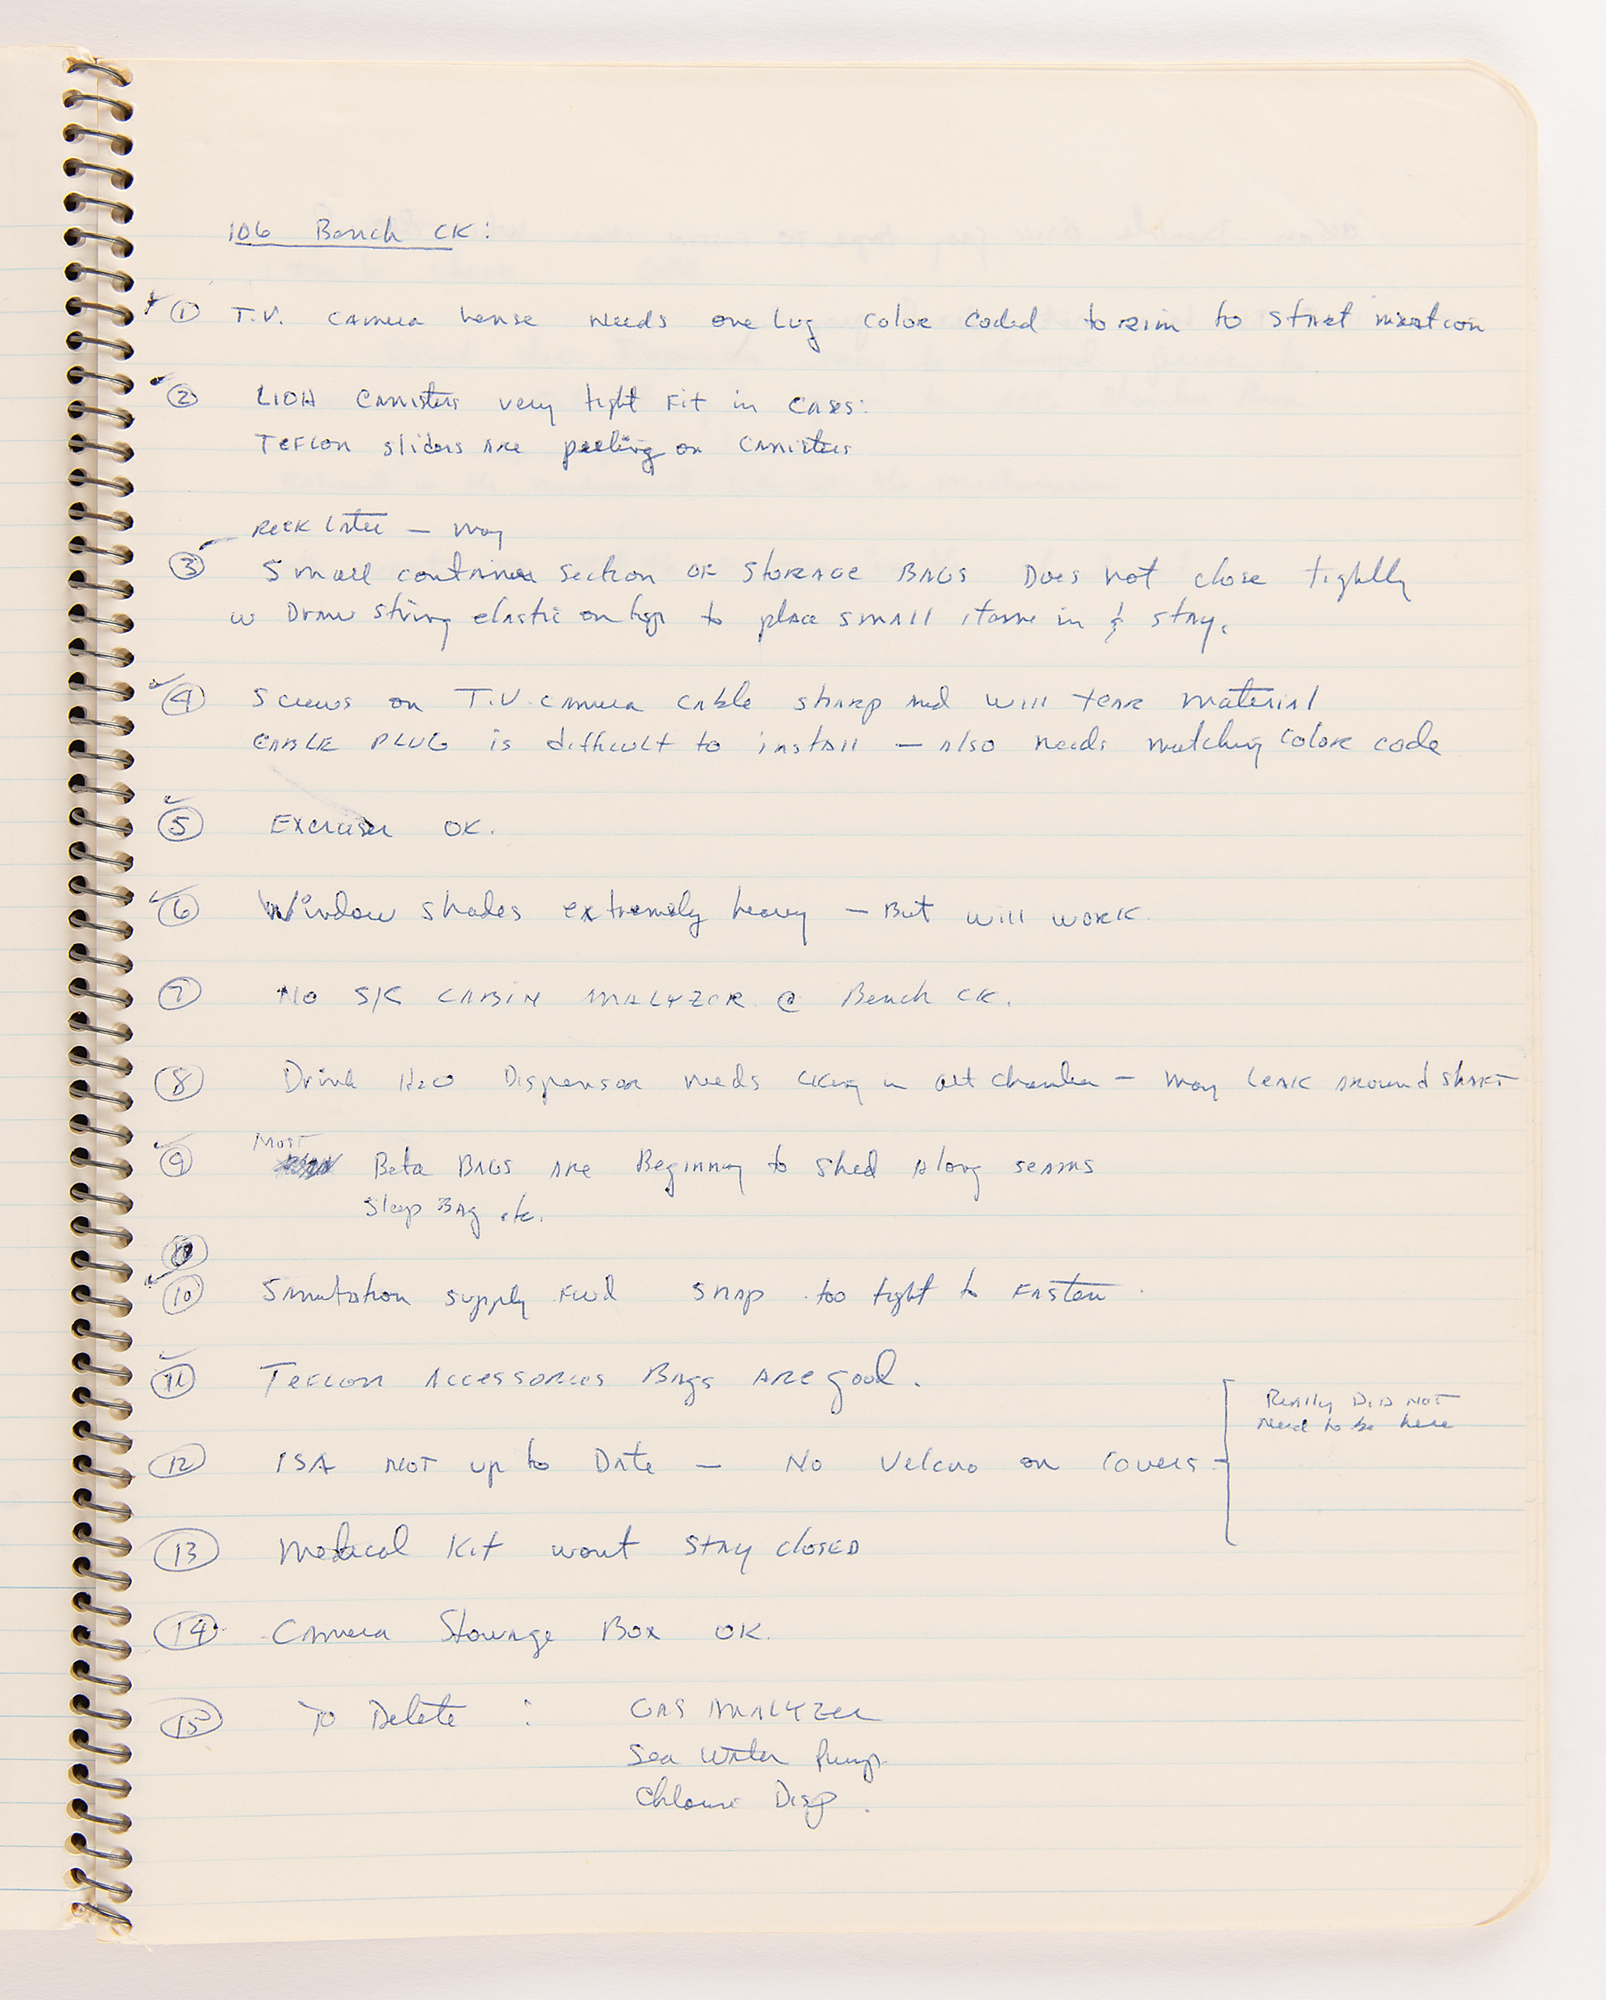 106 Bench CK:
① T.V. camera lense needs one lug color coded to rim to start insertion
② LIOH Canisters very tight fit in cases:
Teflon sliders are peeling on canisters
Reck later — may
③ Small container section of storage bags Does not close tightly
w Draw string elastic on top to place small items in & stay.
④ Screws on T.V. camera cable sharp and will tear material
Cable plug is difficult to install — also needs matching color code
⑤ Exerciser OK.
⑥ Window shades extremely heavy — But will work.
⑦ No S/C cabin analyzer @ Bench CK.
⑧ Drink H2O Dispensor needs cking in alt chamber — may leak around shaft
Most
⑨ Beta Bags are Beginning to shed along seams
Sleep Bag etc.
⑩ Sanitation supply Fwd snap too tight to fasten.
⑪ Teflon Accessories Bags are good.
⑫ ISA not up to Date — No Velcro on covers
Really Did not
need to be here
⑬ Medical Kit wont stay closed
⑭ Camera Stowage Box OK.
⑮ To Delete : Gas Analyzer
Sea Water Pump
Chlorine Disp.